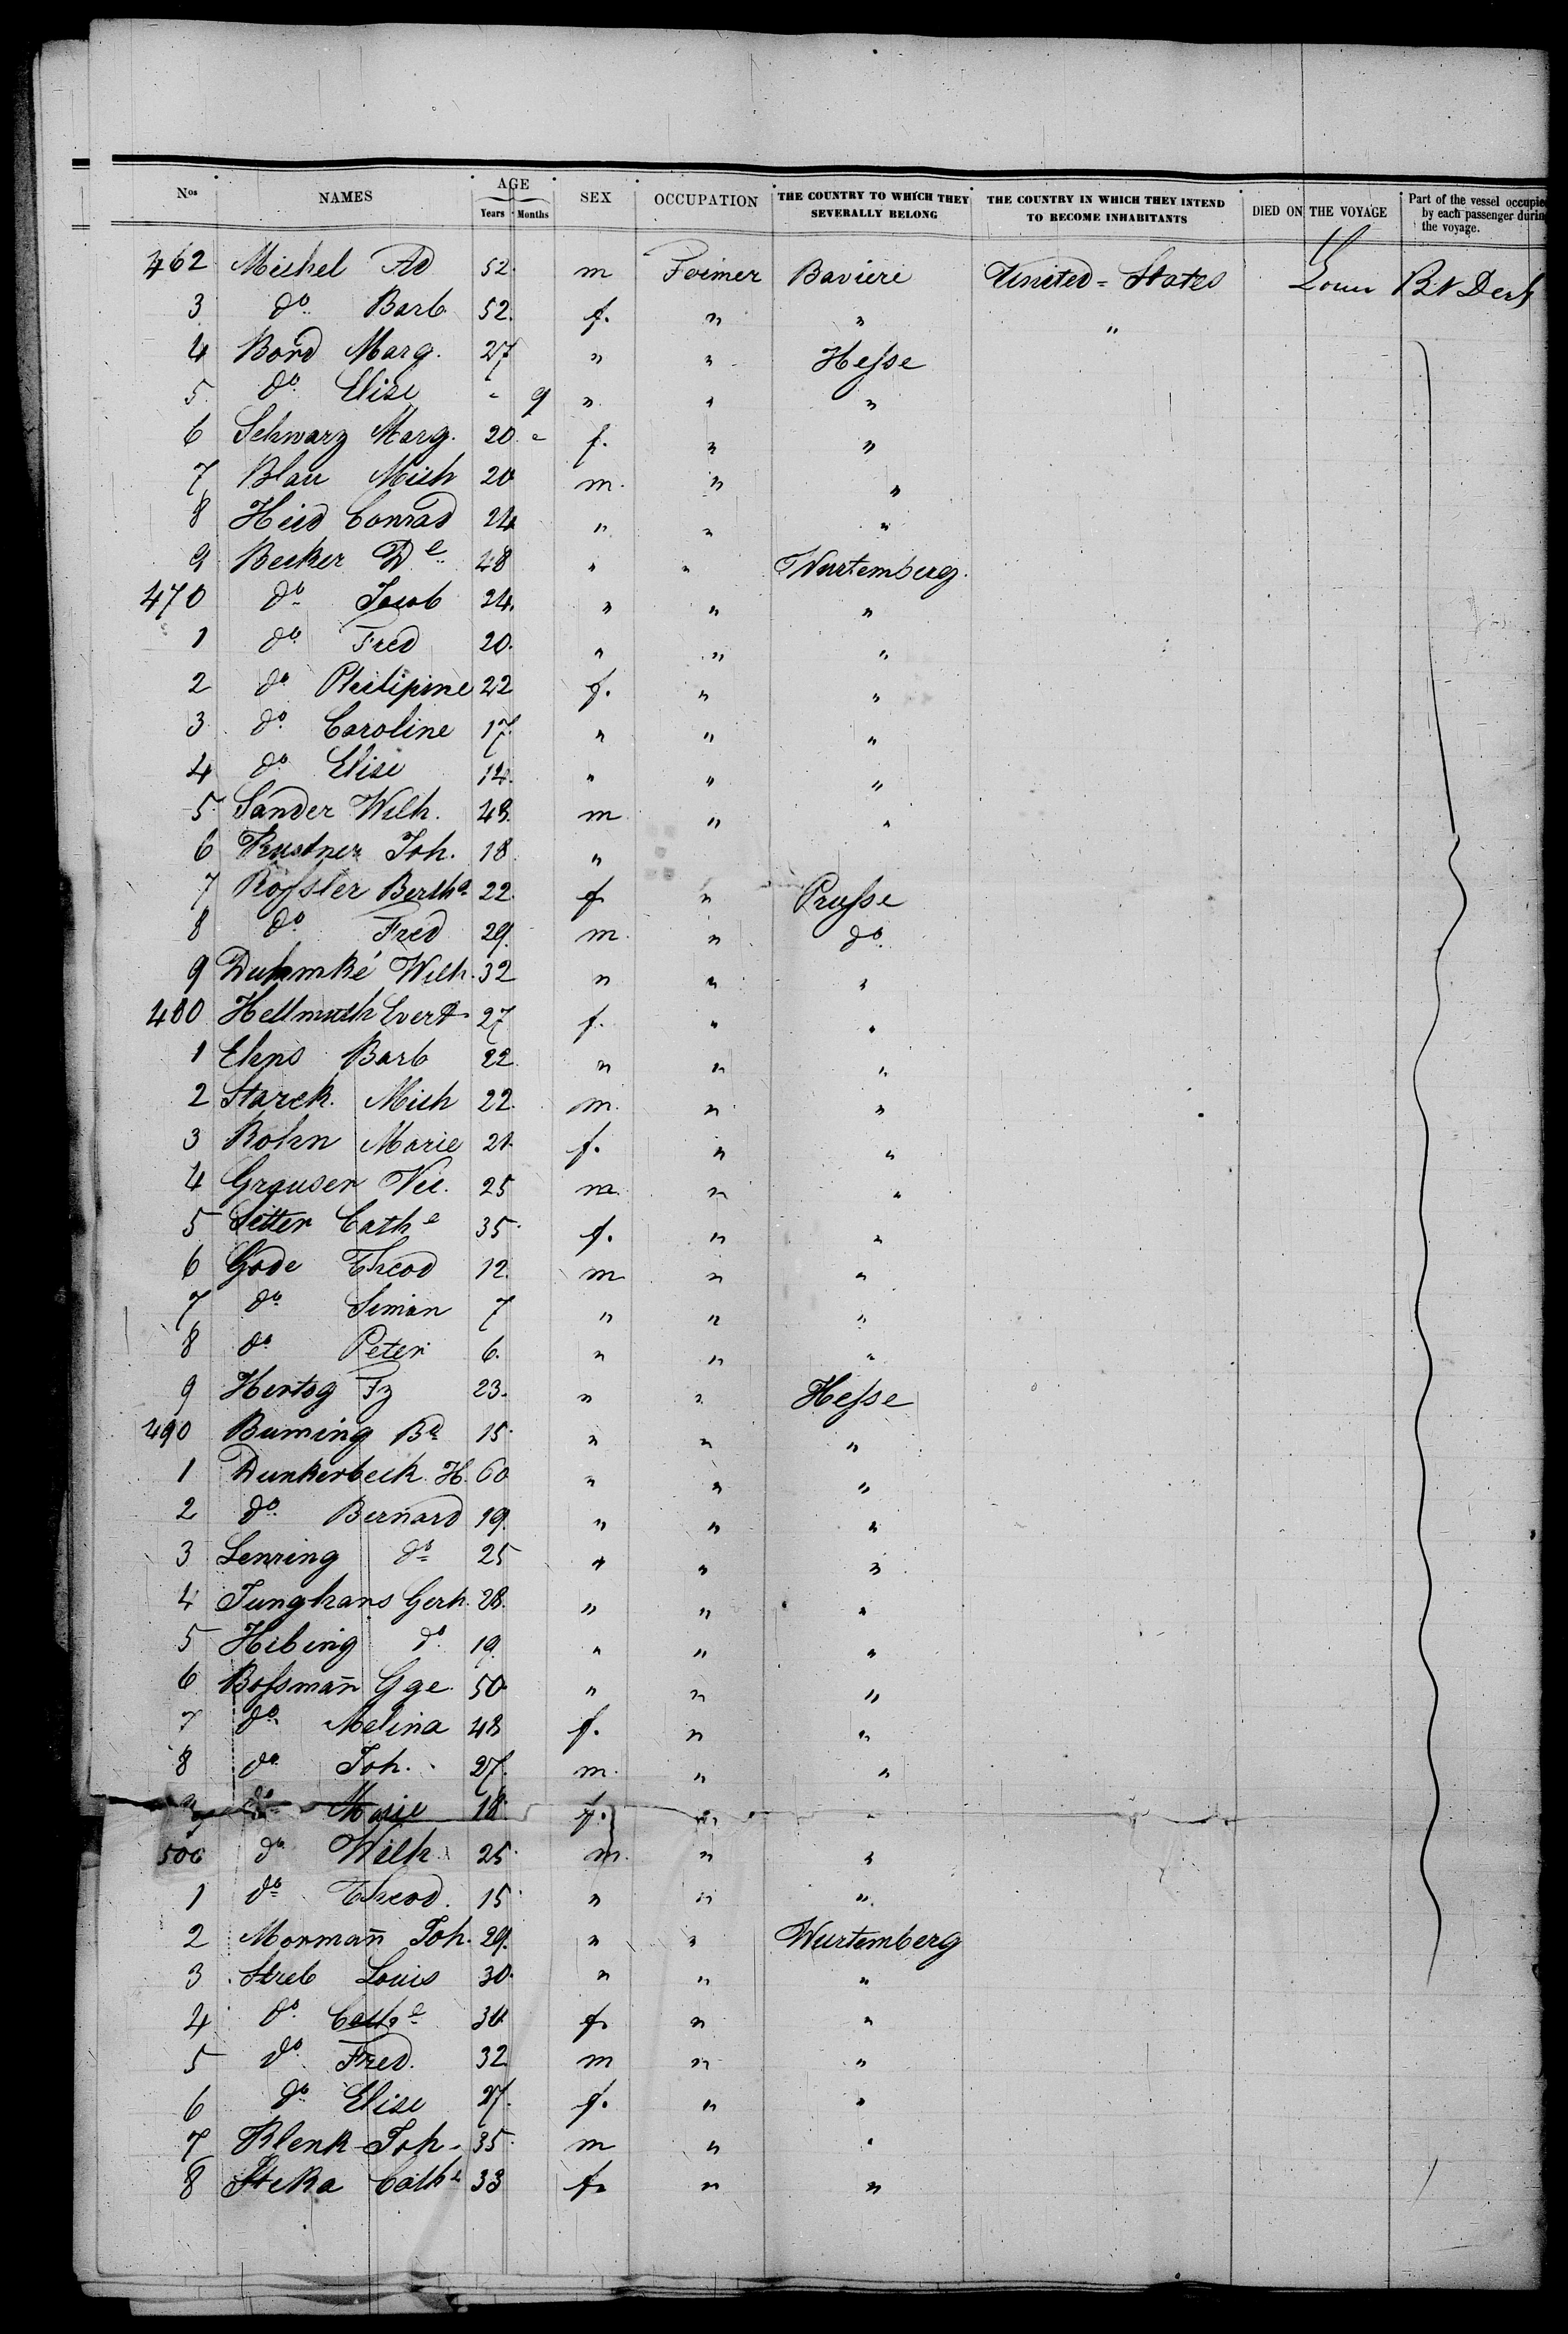 Nos NAMES AGE Years Months SEX OCCUPATION THE COUNTRY TO WHICH THEY SEVERALLY BELONG THE COUNTRY IN WHICH THEY INTEND TO BECOME INHABITANTS DIED ON THE VOYAGE Part of the vessel occupied by each passenger during the voyage.
462 Michel Ad 52 m Foimer Baviere United=States
3 do Barb. 52. f. " " "
4 Bord Marg. 27 " " Hesse
5 do Elise - 9 " " "
6 Schwarz Marg. 20 - f. " "
7 Blau Mich 20 m. " "
8 Heid Conrad 24 " " "
9 Becker De 48 " " Wurtemberg.
470 do Jacob 24. " " "
1 do Fred 20. " " "
2 do Philipine 22 f. " "
3 do Caroline 17. " " "
4 do Elise 14. " " "
5 Sander Wilh. 43. m " "
6 Kustner Joh. 18 "
7 Rossler Bertha 22. f " Prusse
8 do Fred 29. m. " do
9 Duhmké Wilh. 32 " " "
480 Hellmuth Evert 27 f. " "
1 Elens Barb 22 " " "
2 Starck. Mich 22. m. " "
3 Bohn Marie 21. f. " "
4 Grauser Vic. 25 m. " "
5 Setter Cathe 35. f. " "
6 Gode Theod 12. m " "
7 do Simon 7 " " "
8 do Peter 6. " " "
9 Hertog Fz 23. " " Hesse
490 Buming Bd 15. " " "
1 Dunkerbeck. H. 60 " " "
2 do Bernard 19. " " "
3 Lenring do 25 " " "
4 Junghans Gerh. 28. " " "
5 Hibing do 19. " " "
6 Bossmañn Gge 50. " " "
7 do Melina 48 f. " "
8 do Joh. 27. m. " "
9 do Marie 18. f. " "
500 do Wilh. 25. m. " "
1 do Theod. 15. " " "
2 Mormañn Joh. 29. " " Wurtemberg
3 Streb Louis 30. " " "
4 do Cathe 30. f. " "
5 do Fred. 32 m " "
6 do Elise 27. f. " "
7 Klenk Joh. 35. m " "
8 Steka Cathe 33 f. " "